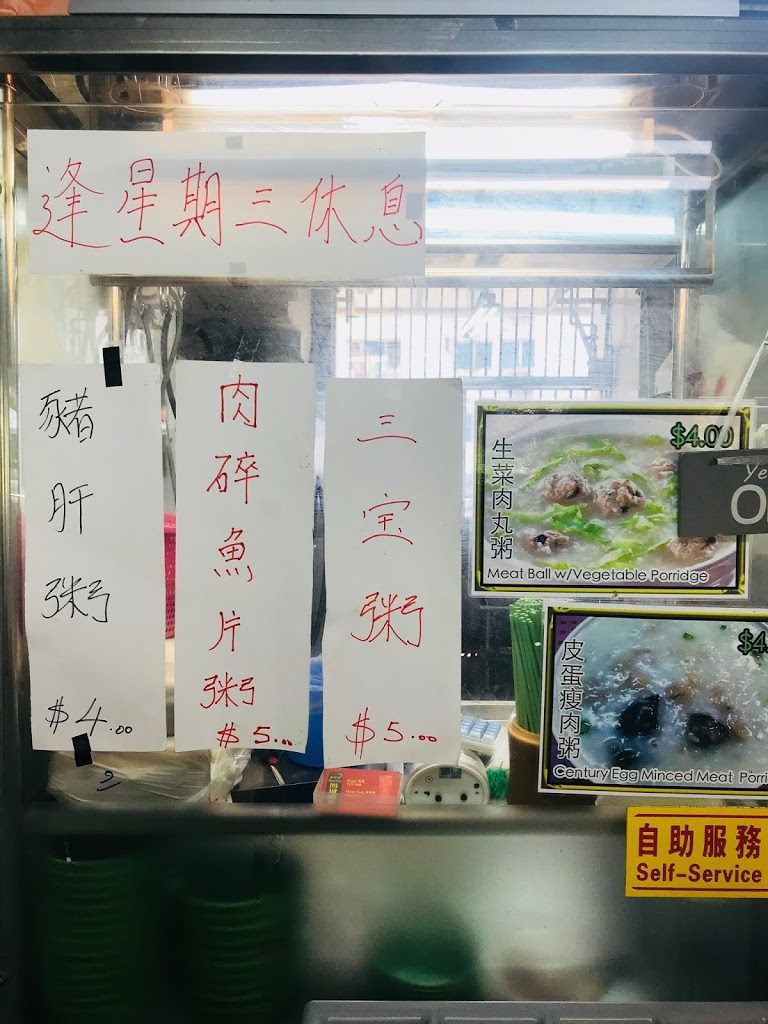 逢星期三休息
豬肝粥
$4.00
肉碎魚片粥
$5.00
三宝粥
$5.00
$4.00
生菜肉丸粥
Meat Ball w/Vegetable Porridge
皮蛋瘦肉粥
Century Egg Minced Meat
自助服務
Self-Service